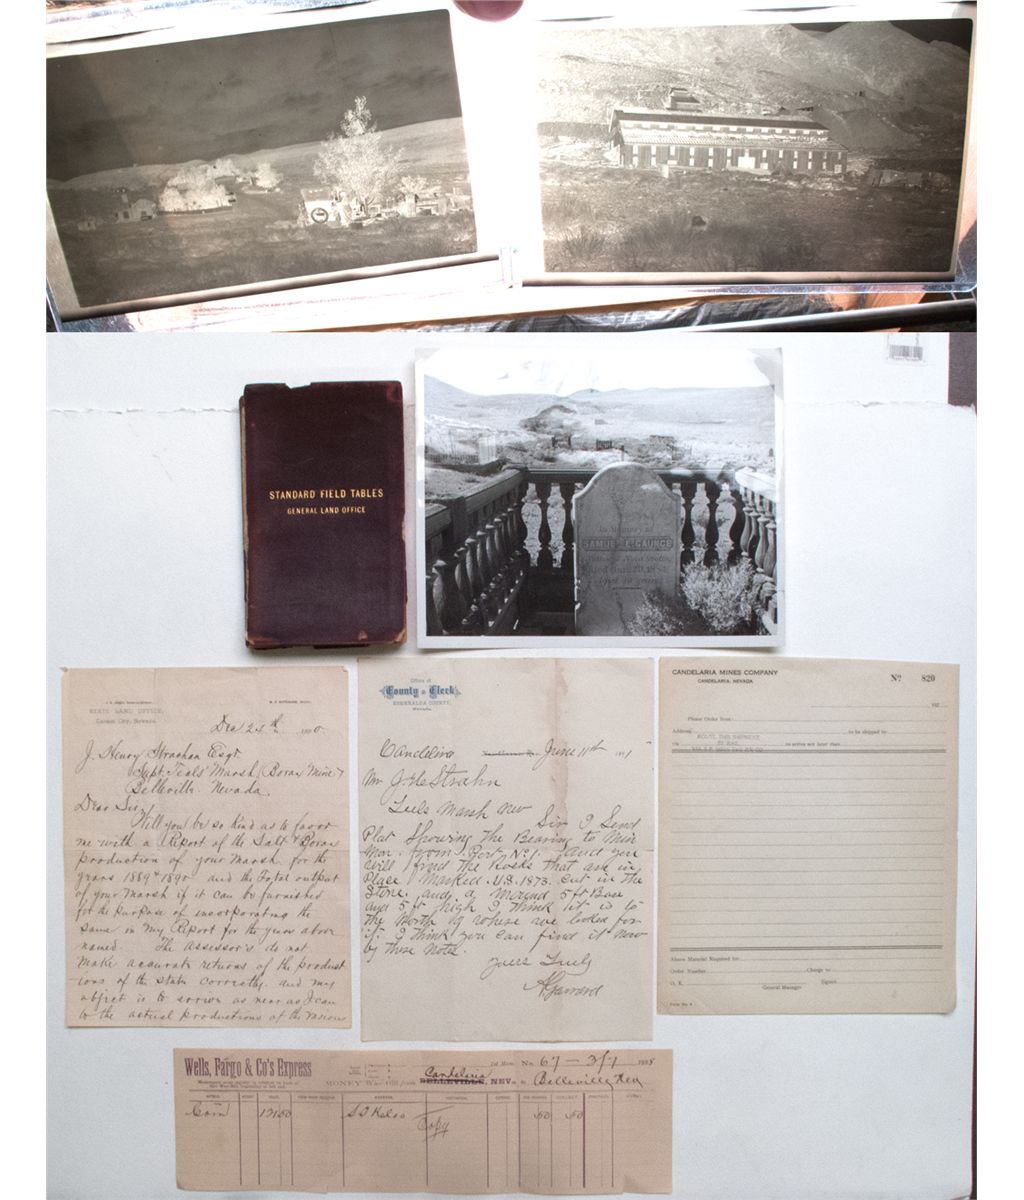 STANDARD FIELD TABLES
GENERAL LAND OFFICE
In Memory of
SAMUEL E. GAUNCE
STATE LAND OFFICE,
Carson City, Nevada.
Dec 24th 1890
J. Henry Strachan Esqr
Supt. Teals' Marsh (Borax Mine)
Belleville Nevada.
Dear Sir
Will you be so kind as to favor
me with a Report of the Salt & Borax
production of your Marsh for the
years 1889 & 1890 and the Total output
of your Marsh if it can be furnished
for the purpose of incorporating the
same in my Report for the years above
named. The assessor's do not
make accurate returns of the product
ions of the state correctly and my
object is to arrive as near as I can
to the actual productions of the various
Office of
County Clerk
ESMERALDA COUNTY,
Nevada.
Candelaria June 11th
Mr J. H. Strahn
Teels Marsh Nev
Sir I Send
Plat Showing the Bearing to Min
Mon. from Post No 1. and you
will find the Rocks that are in
Place Marked U.S. 1873. cut in the
Stone and a mound 5 ft Base
and 5 ft high I think it is to
the North of where we looked for
it. I think you can find it now
by these Notes.
Yours Truly
CANDELARIA MINES COMPANY
CANDELARIA, NEVADA
No 820
192
Please Order from
Address
to be shipped by
via
to arrive not later than
Above Material Required for
Order Number
Charge to
O. K.
General Manager
Signed
Form No. 8
Wells, Fargo & Co's Express
No. 67 — 3/7
MONEY Way-Bill from Candelaria
BELLEVILLE, NEV. to Belleville Nev
Coin
Copy
50 50